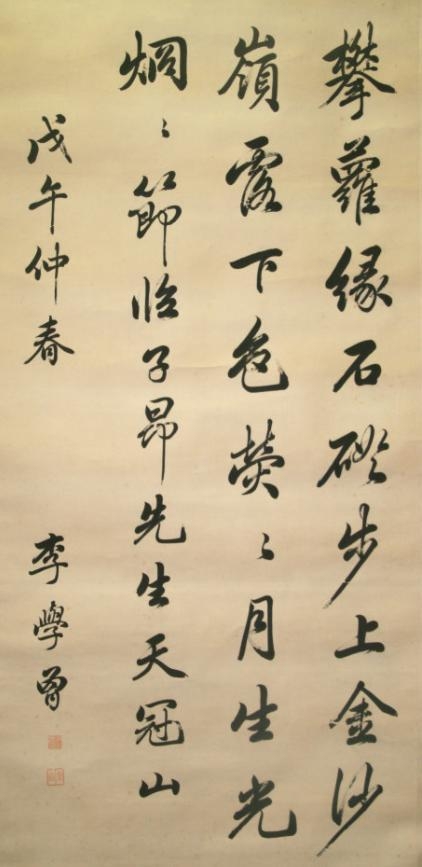 攀蘿緣石磴步上金沙
嶺露下色熒〻月生光
炯〻節臨子昂先生天冠山
戊午仲春
李學曾